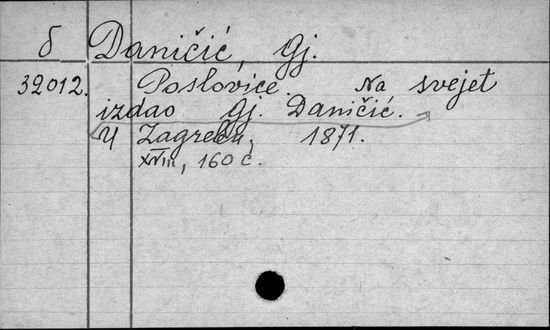 б Daničić, Gj.
32012. Poslovice. Na svejet
izdao Gj. Daničić.
U Zagrebu, 1871.
XVIII, 160 c.